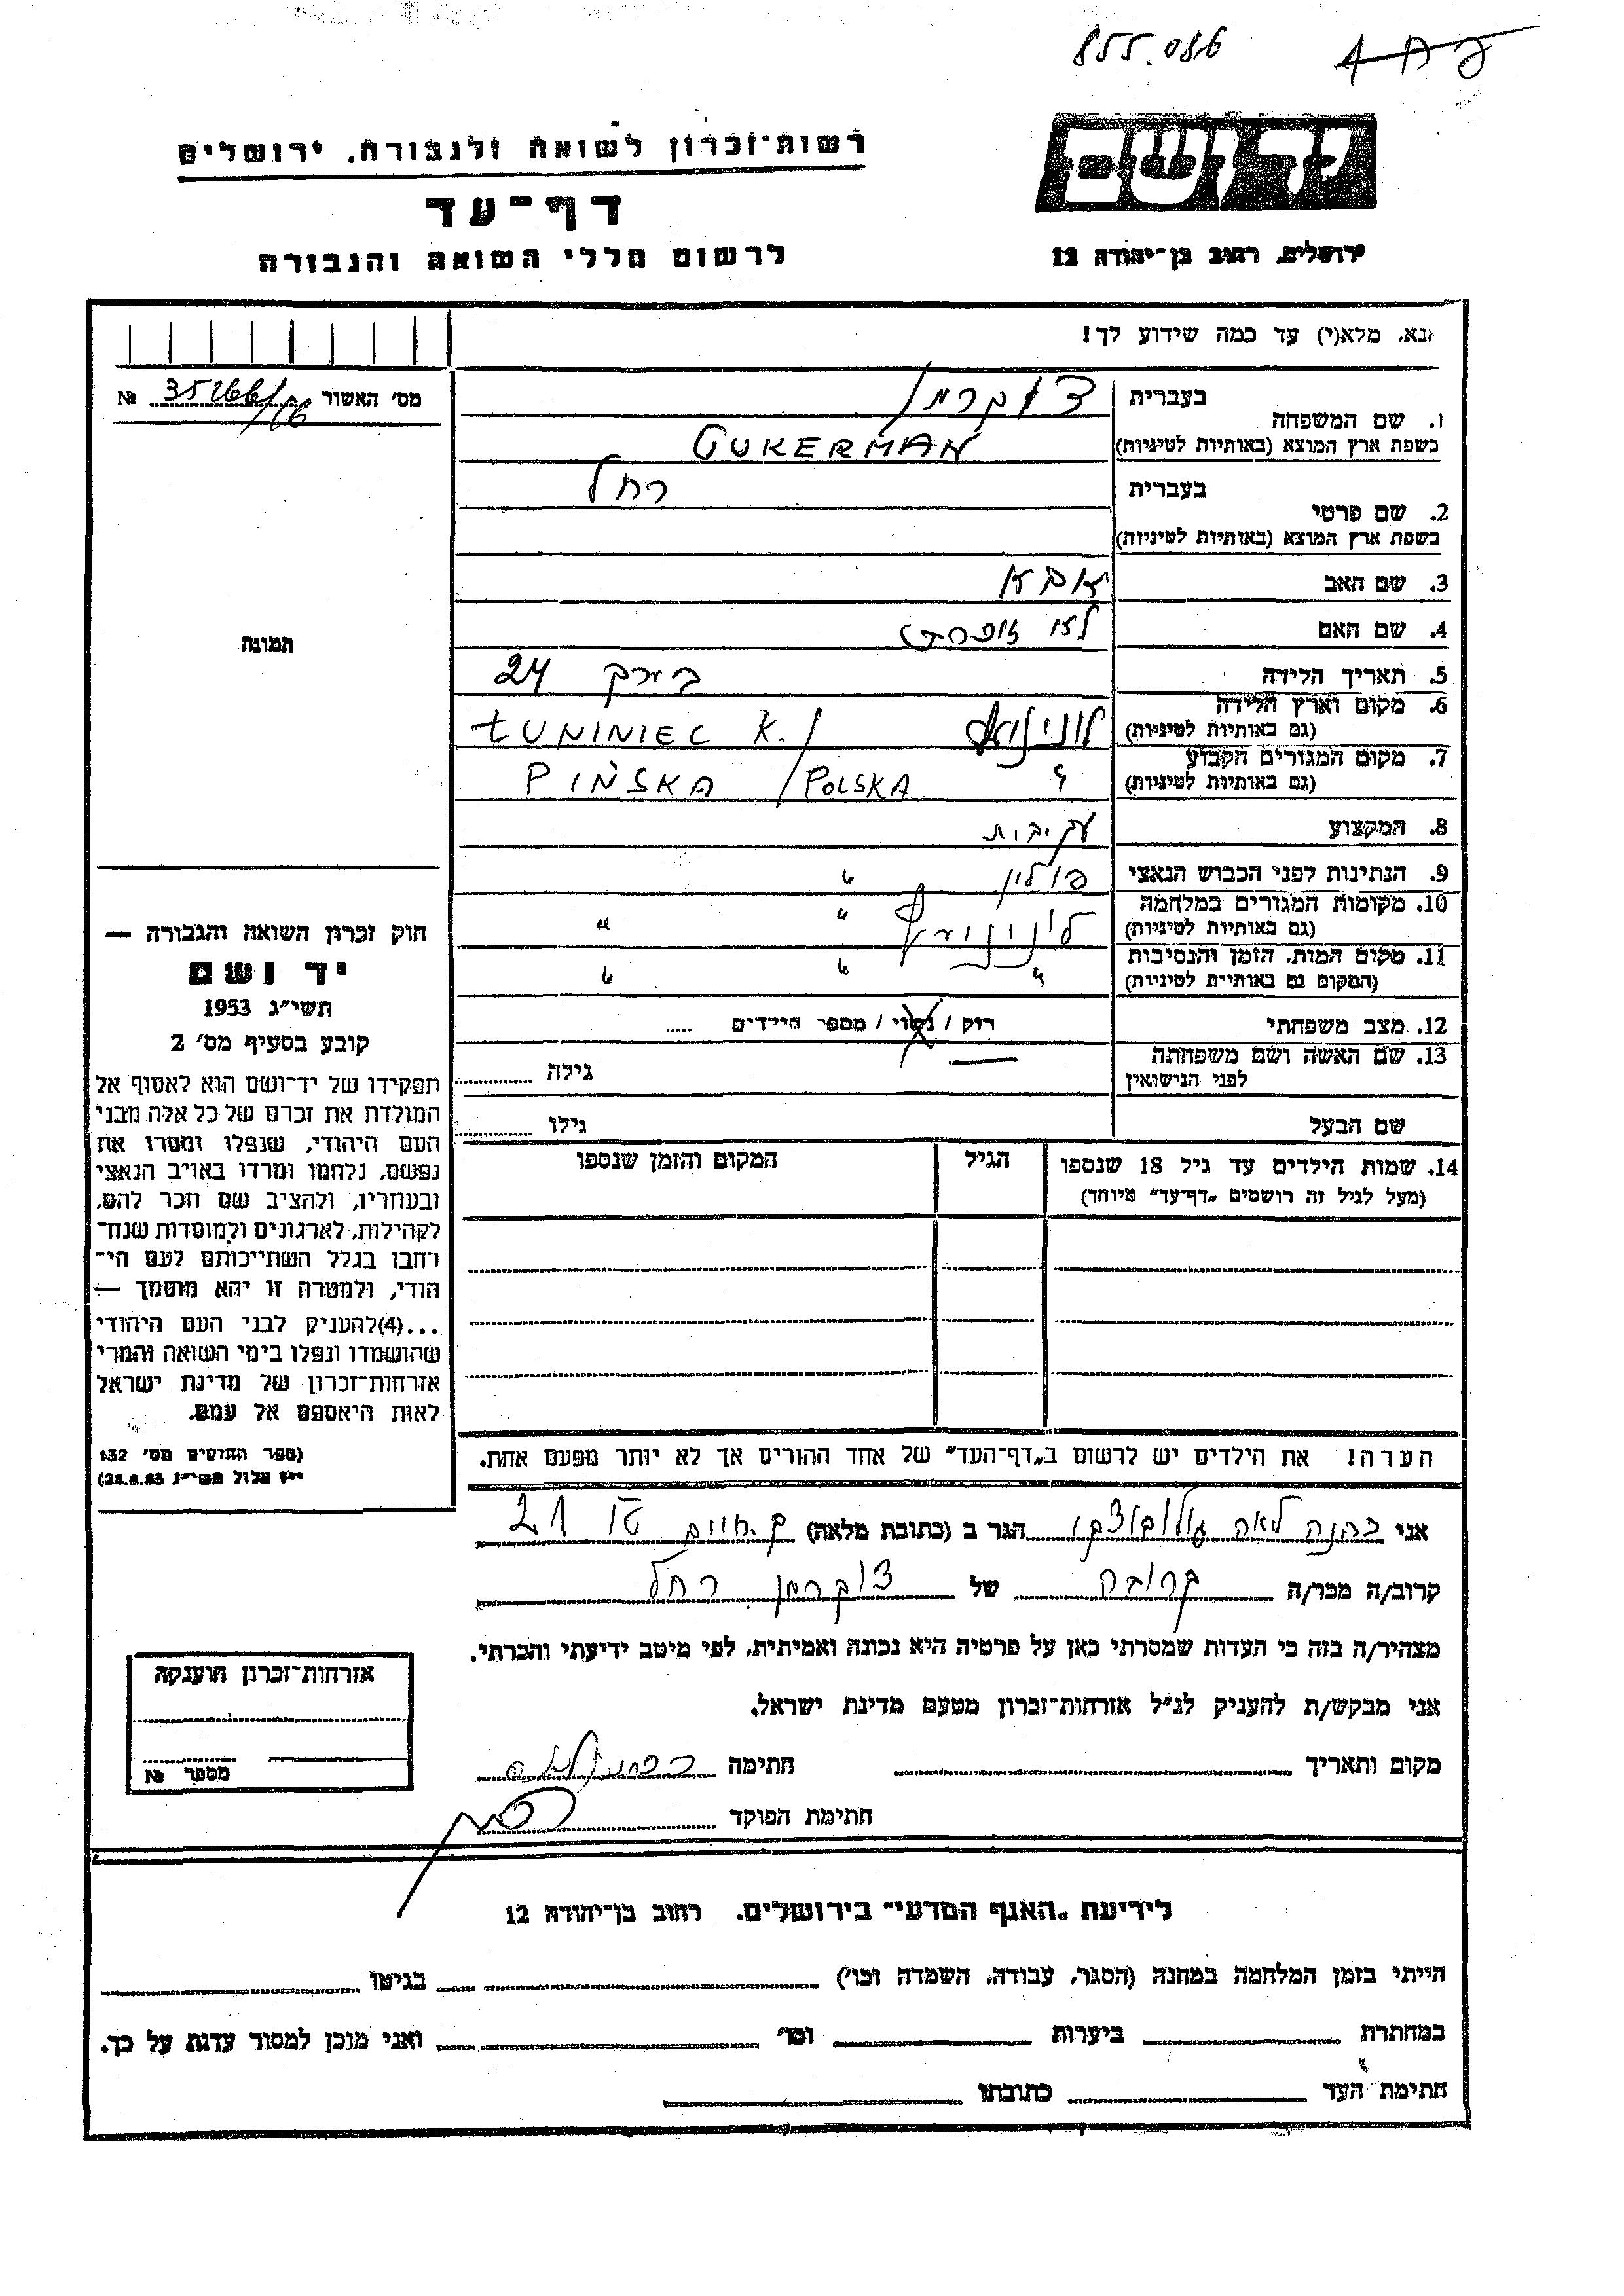 855.086
רשות־זכרון לשואה ולגבורה, ירושלים
יד ושם
דף־עד
לרשום חללי השואה והגבורה
ירושלים, רחוב בן־יהודה 12
נא, מלא(י) עד כמה שידוע לך!
מס' האשור №
1. שם המשפחה
בעברית צוקרמן
בשפת ארץ המוצא (באותיות לטיניות) CUKERMAN
2. שם פרטי
בעברית רחל
בשפת ארץ המוצא (באותיות לטיניות)
3. שם האב אבא
4. שם האם
5. תאריך הלידה 24
6. מקום וארץ הלידה
(גם באותיות לטיניות) ŁUNINIEC K./
7. מקום המגורים הקבוע
(גם באותיות לטיניות) PIŃSKA / POLSKA
8. המקצוע
9. הנתינות לפני הכבוש הנאצי פולין "
10. מקומות המגורים במלחמה
(גם באותיות לטיניות) " "
11. מקום המות, הזמן והנסיבות
(המקום גם באותיות לטיניות) " " "
12. מצב משפחתי רוק / נשוי / מספר הילדים .....
13. שם האשה ושם משפחתה
לפני הנישואין — גילה
שם הבעל גילו
14. שמות הילדים עד גיל 18 שנספו הגיל המקום והזמן שנספו
(מעל לגיל זה רושמים „דף־עד" מיוחד)
תמונה
חוק זכרון השואה והגבורה —
יד ושם
תשי"ג 1953
קובע בסעיף מס' 2
תפקידו של יד־ושם הוא לאסוף אל
המולדת את זכרם של כל אלה מבני
העם היהודי, שנפלו ומסרו את
נפשם, נלחמו ומרדו באויב הנאצי
ובעוזריו, ולהציב שם וזכר להם,
לקהילות, לארגונים ולמוסדות שנח־
רבו בגלל השתייכותם לעם הי־
הודי, ולמטרה זו יהא מוסמך —
...(4)להעניק לבני העם היהודי
שהושמדו ונפלו בימי השואה והמרי
אזרחות־זכרון של מדינת ישראל
לאות היאספם אל עמם.
(ספר החוקים מס' 132
י"ז אלול תשי"ג 28.8.53)
הערה! את הילדים יש לרשום ב„דף־העד" של אחד ההורים אך לא יותר מפעם אחת.
אני כהנה לאה הגר ב (כתובת מלאה) ק. חיים 21
קרוב/ה מכר/ה קרובה של צוקרמן רחל
מצהיר/ה בזה כי העדות שמסרתי כאן על פרטיה היא נכונה ואמיתית, לפי מיטב ידיעתי והכרתי.
אני מבקש/ת להעניק לנ"ל אזרחות־זכרון מטעם מדינת ישראל.
מקום ותאריך חתימה
חתימת הפוקד
אזרחות־זכרון הוענקה
מספר №
לידיעת „האגף המדעי" בירושלים, רחוב בן־יהודה 12
הייתי בזמן המלחמה במחנה (הסגר, עבודה, השמדה וכו') בגיטו
במחתרת ביערות וכו' ואני מוכן למסור עדות על כך.
חתימת העד כתובתו